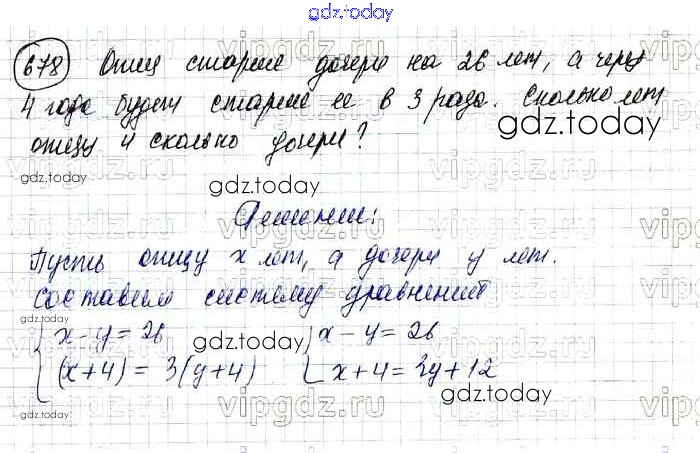 gdz.today
678 Отец старше дочери на 26 лет, а через
4 года будет старше ее в 3 раза. Сколько лет
отцу и сколько дочери?
gdz.today
gdz.today
Решение:
Пусть отцу x лет, а дочери y лет.
Составим систему уравнений
x - y = 26 x - y = 26
(x+4) = 3(y+4) x + 4 = 3y + 12
gdz.today
gdz.today
vipgdz.ru